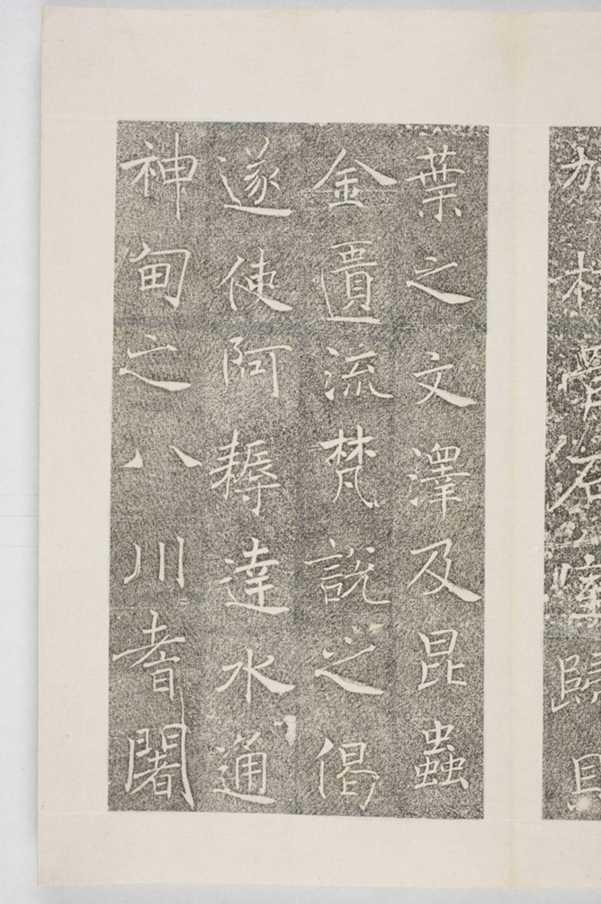 加枯骨石室歸貝
葉之文澤及昆蟲
金匱流梵說之偈
遂使阿耨達水通
神甸之八川耆闍